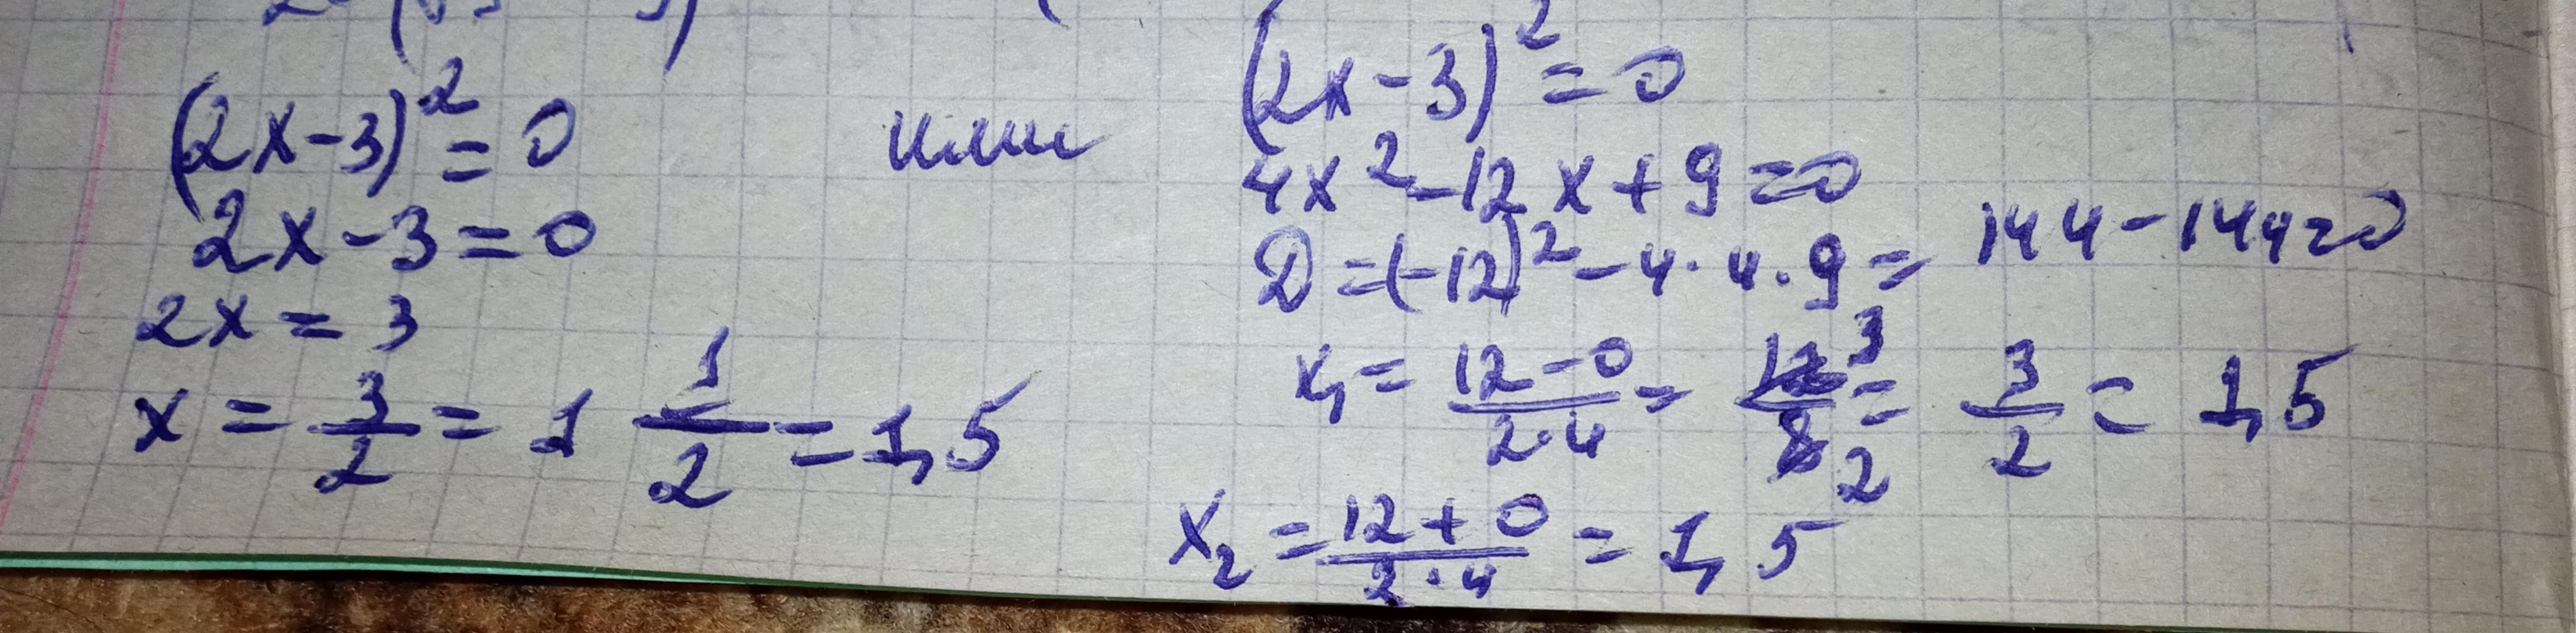 (2x-3)² = 0
2x-3=0
2x = 3
x = 3/2 = 1 1/2 = 1,5
или
(2x-3)² = 0
4x²-12x+9=0
D=(-12)²-4·4·9= 144-144=0
x₁ = (12-0)/(2·4) = 12/8 3/2 = 3/2 = 1,5
x₂ = (12+0)/(2·4) = 1,5